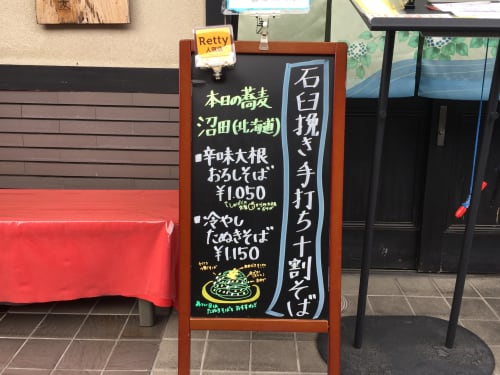 Retty
人気店
石臼挽き手打ち十割そば
本日の蕎麦
沼田(北海道)
・辛味大根
おろしそば
¥1.050
・冷やし
たぬきそば
¥1.150